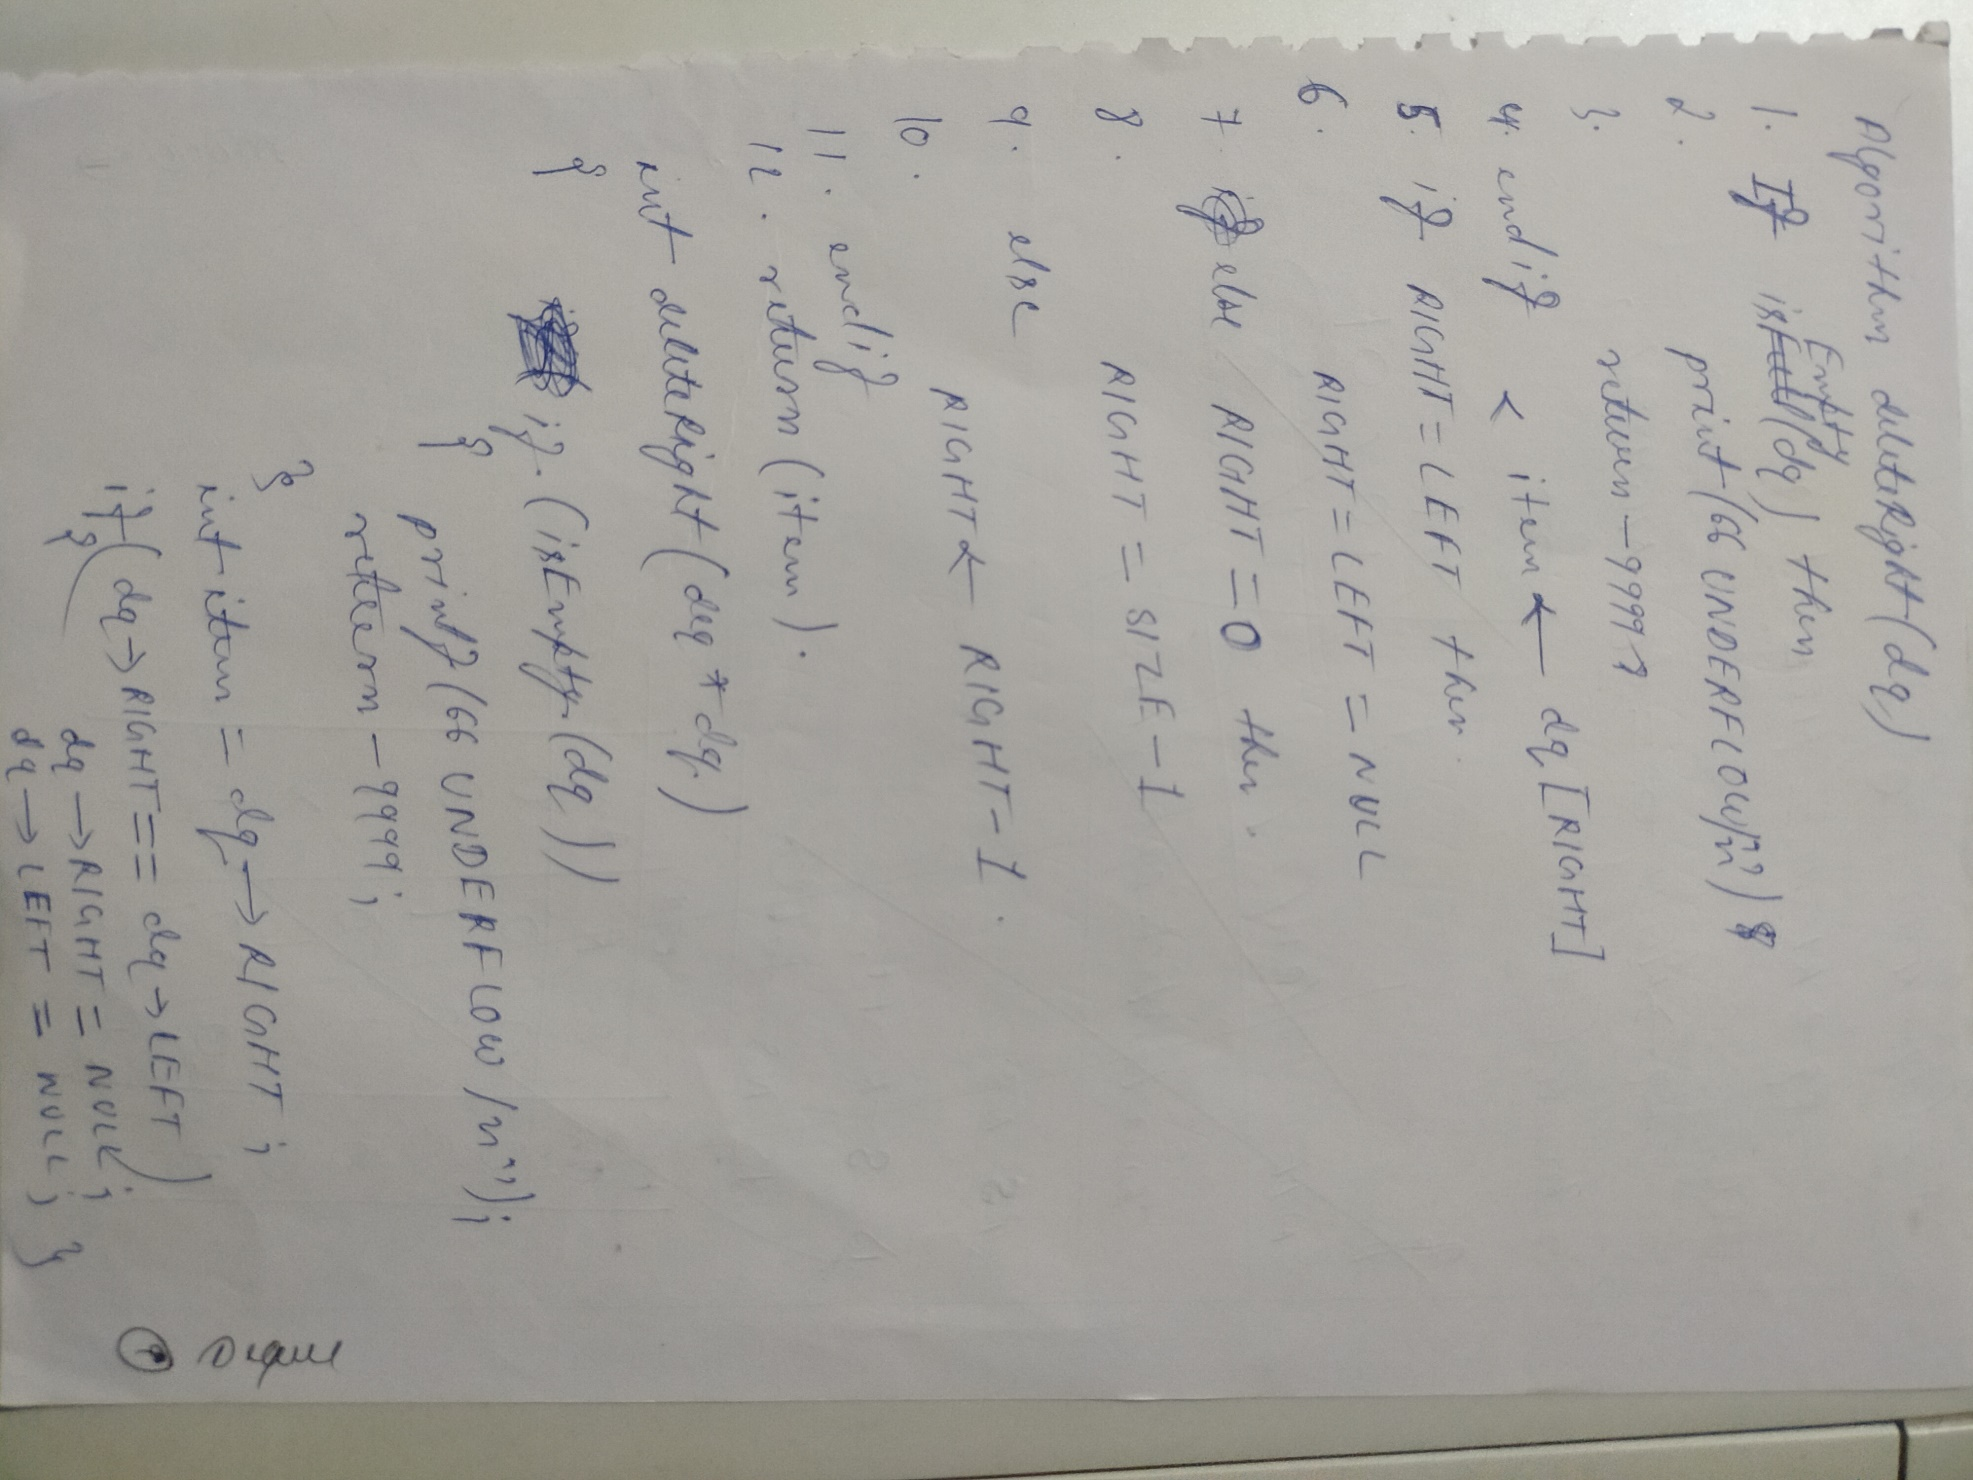 Algorithm deleteRight(dq)
1. If isEmpty(dq) then
2. print("UNDERFLOW\n")
3. return -9999
4. endif < item ← dq[RIGHT]
5. if RIGHT = LEFT then
6. RIGHT = LEFT = NULL
7. else RIGHT = 0 then
8. RIGHT = SIZE - 1
9. else
10. RIGHT ← RIGHT - 1
11. endif
12. return (item).
int deleteRight(deq *dq)
{ if (isEmpty(dq))
{
printf("UNDERFLOW /n");
return -9999;
}
int item = dq → RIGHT;
if (dq → RIGHT == dq → LEFT)
{ dq → RIGHT = NULL;
dq → LEFT = NULL; }
Deque